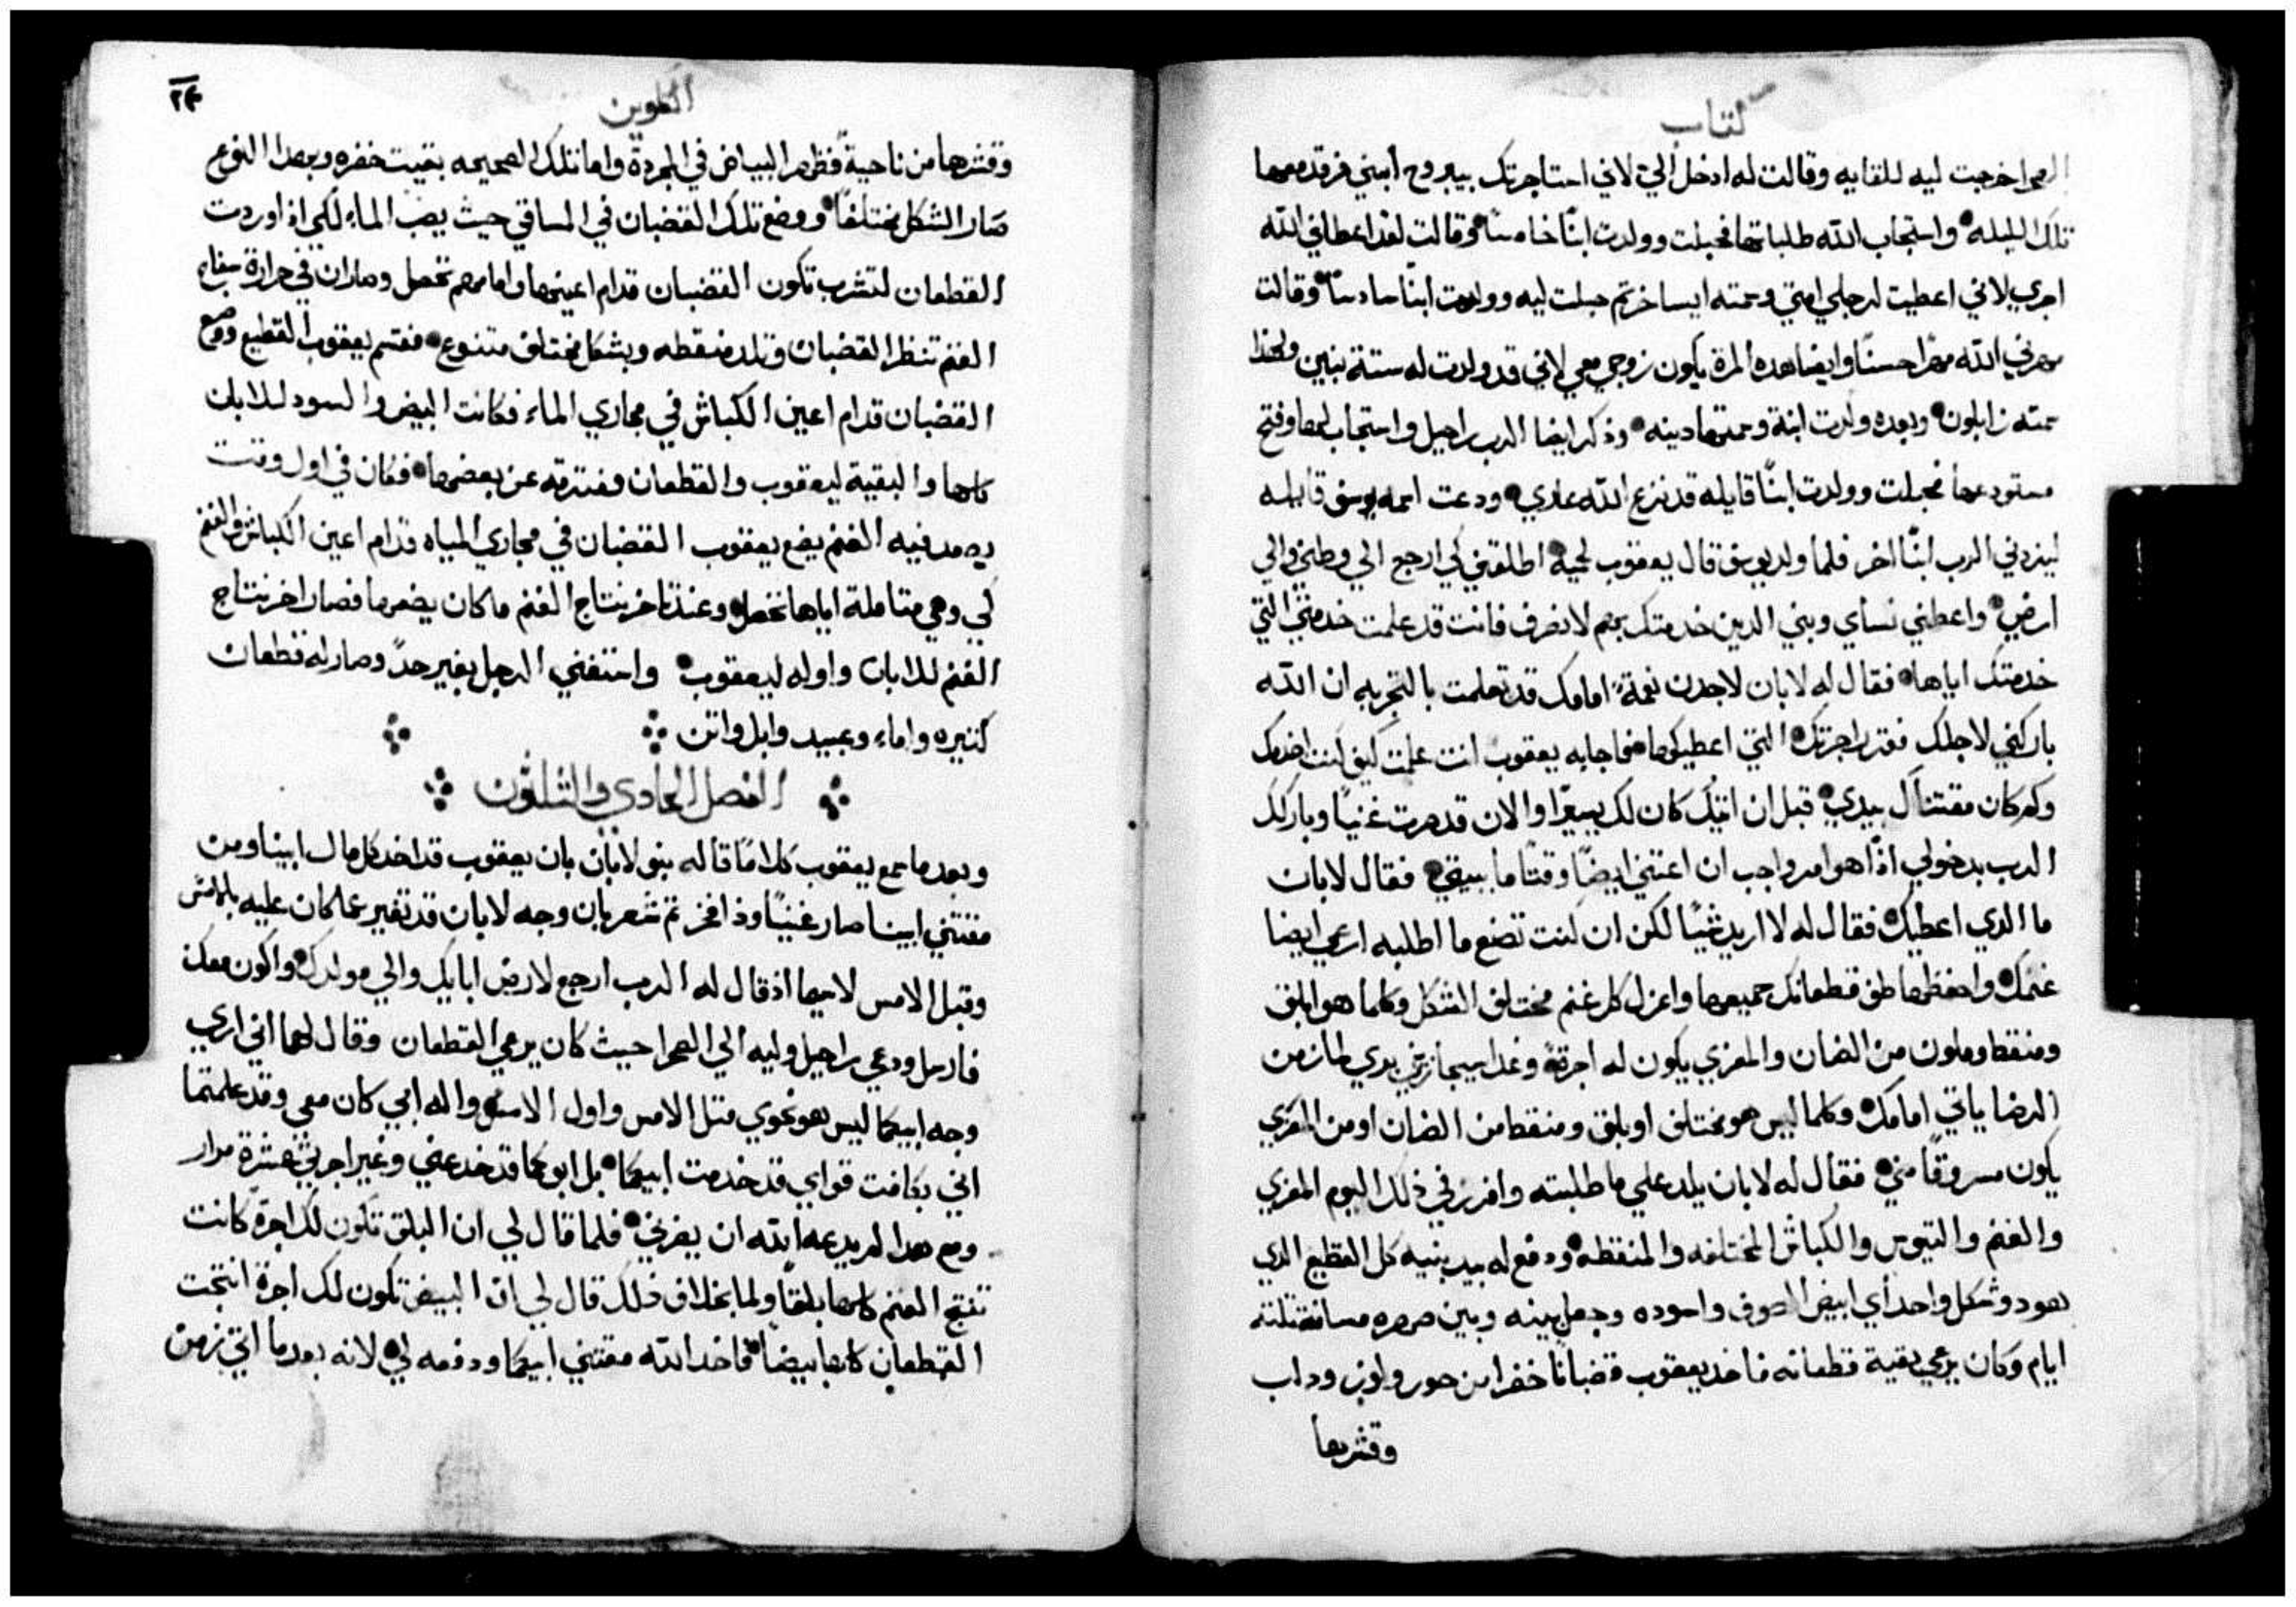 كتاب
الصحرا خرجت ليه للقايه وقالت له ادخل اليّ لاني استاجرتك بيبروح أبني فرقد معها
تلك الليله واستجاب الله طلباتها فحبلت وولدت ابنًا خامسًا وقالت لقد اعطاني الله
اجري لاني اعطيت لرجلي امتي وسمته ايساخر ثم حبلت ليه وولدت ابنًا سادسًا وقالت
مهرني الله مهرًا حسنًا وايضا هذه المرة يكون زوجي معي لاني قد ولدت له ستة بنين ولهذا
سمته زابلون وبعده ولدت ابنة وسمتها دينه وذكر ايضا الرب راحيل واستجاب لها وفتح
مستودعها فحبلت وولدت ابنًا قايله قد نزع الله عاري ودعت اسمه يوسف قايله
ليزدني الرب ابنًا اخر فلما ولد يوسف قال يعقوب لحميه اطلقني كي ارجع الي وطني والي
ارضي واعطني نساي وبني الدين خدمتك بهم لانصرف فانت قد علمت خدمتي التي
خدمتك اياها فقال له لابان لاجدن نعمةً امامك قد تعلمت بالتجربه ان الله
باركني لاجلك فقدر اجرتك التي اعطيكها فاجابه يعقوب انت علمت كيف كنت اخدمك
وكم كان مقتناك بيدي قبل ان اتيك كان لك يسيرًا والان قد صرت غنيًا وباركك
الرب بدخولي اذًا هو امر واجب ان اعتني ايضًا وقتًا ما ببيتي فقال لابان
ما الدي اعطيك فقال له لا اريد شيًا لكن ان كنت تصنع ما اطلبه ارعي ايضا
غنمك واحفظها طف قطعانك جميعها واعزل كل غنم مختلف الشكل وكلما هو ابلق
ومنقط وملون من الضان والمعزي يكون له اجرةً وغدا سيجازيني بري حان زمن
الرضا ياتي امامك وكلما ليس هو مختلف او بلق ومنقط من الضان او من المعزي
يكون مسروقًا مني فقال له لابان يلد علي ما طلبته وافرز في ذلك اليوم المعزي
والغنم والتيوس والكباش المختلفه والمنقطه ودفع له بيد بنيه كل القطيع الدي
هو دو شكل واحد أي ابيض الصوف واسوده وجعل بينه وبين صهره مسافة تلتة
ايام وكان يرعي بقية قطعانه فاخد يعقوب قضبانًا خضرا من حور ولوز ودلب
وقشرها
التكوين
٢٤
وقشرها من ناحيةً فظهر البياض في المجردة واما تلك الصحيحه بقيت خضره وبهدا النوع
صار الشكل مختلفًا ووضع تلك القضبان في المساقي حيث يصب الماء لكي اذا وردت
القطعان لتشرب تكون القضبان قدام اعينها وامامهم تحصل وصار ان في حرارة سفاح
الغنم تنظر القضبان وتلد منقطه وبشكل مختلف متنوع فقسم يعقوب القطيع ووضع
القضبان قدام اعين الكباش في مجاري الماء فكانت البيض والسود للابان
كلها والبقية ليعقوب والقطعان مفترقه عن بعضها فكان في اول وقت
يصعد فيه الغنم يضع يعقوب القضبان في مجاري المياه قدام اعين الكباش والغنم
لكي وهي متاملة اياها تحصل وعند تاخر نتاج الغنم ما كان يضعها فصار اخر نتاج
الغنم للابان واوله ليعقوب واستغني الرجل بغير حدً وصار له قطعان
كتيره واماء وعبيد وابل واتن
الفصل الحادي والتلتون
وبعد ما سمع يعقوب كلامًا قاله بنو لابان بان يعقوب قد اخد كل مال ابينا ومن
مقتني ابينا صار غنيًا وذا فخر ثم شعر بان وجه لابان قد تغير عما كان عليه بالامس
وقبل الامس لاسيما اذ قال له الرب ارجع لارض ابايك والي مولدك واكون معك
فارسل ودعي راحيل وليه الي الصحرا حيث كان يرعي القطعان وقال لهما اني اري
وجه ابيكما ليس هو نحوي متل الامس واول الامس واله ابي كان معي وقد علمتما
اني بكافت قواي قد خدمت ابيكما بل ابوكما قد خدعني وغير اجرتي عشرة مرار
ومع هدا لم يدعه الله ان يضرني فلما قال لي ان البلق تكون لك اجرة كانت
تنتج الغنم كلها بلقًا ولما بخلاف ذلك قال لي ان البيض تكون لك اجرة انتجت
القطعان كلها بيضًا فاخد الله مقتني ابيكما ودفعه لي لانه بعد ما اتي زمن